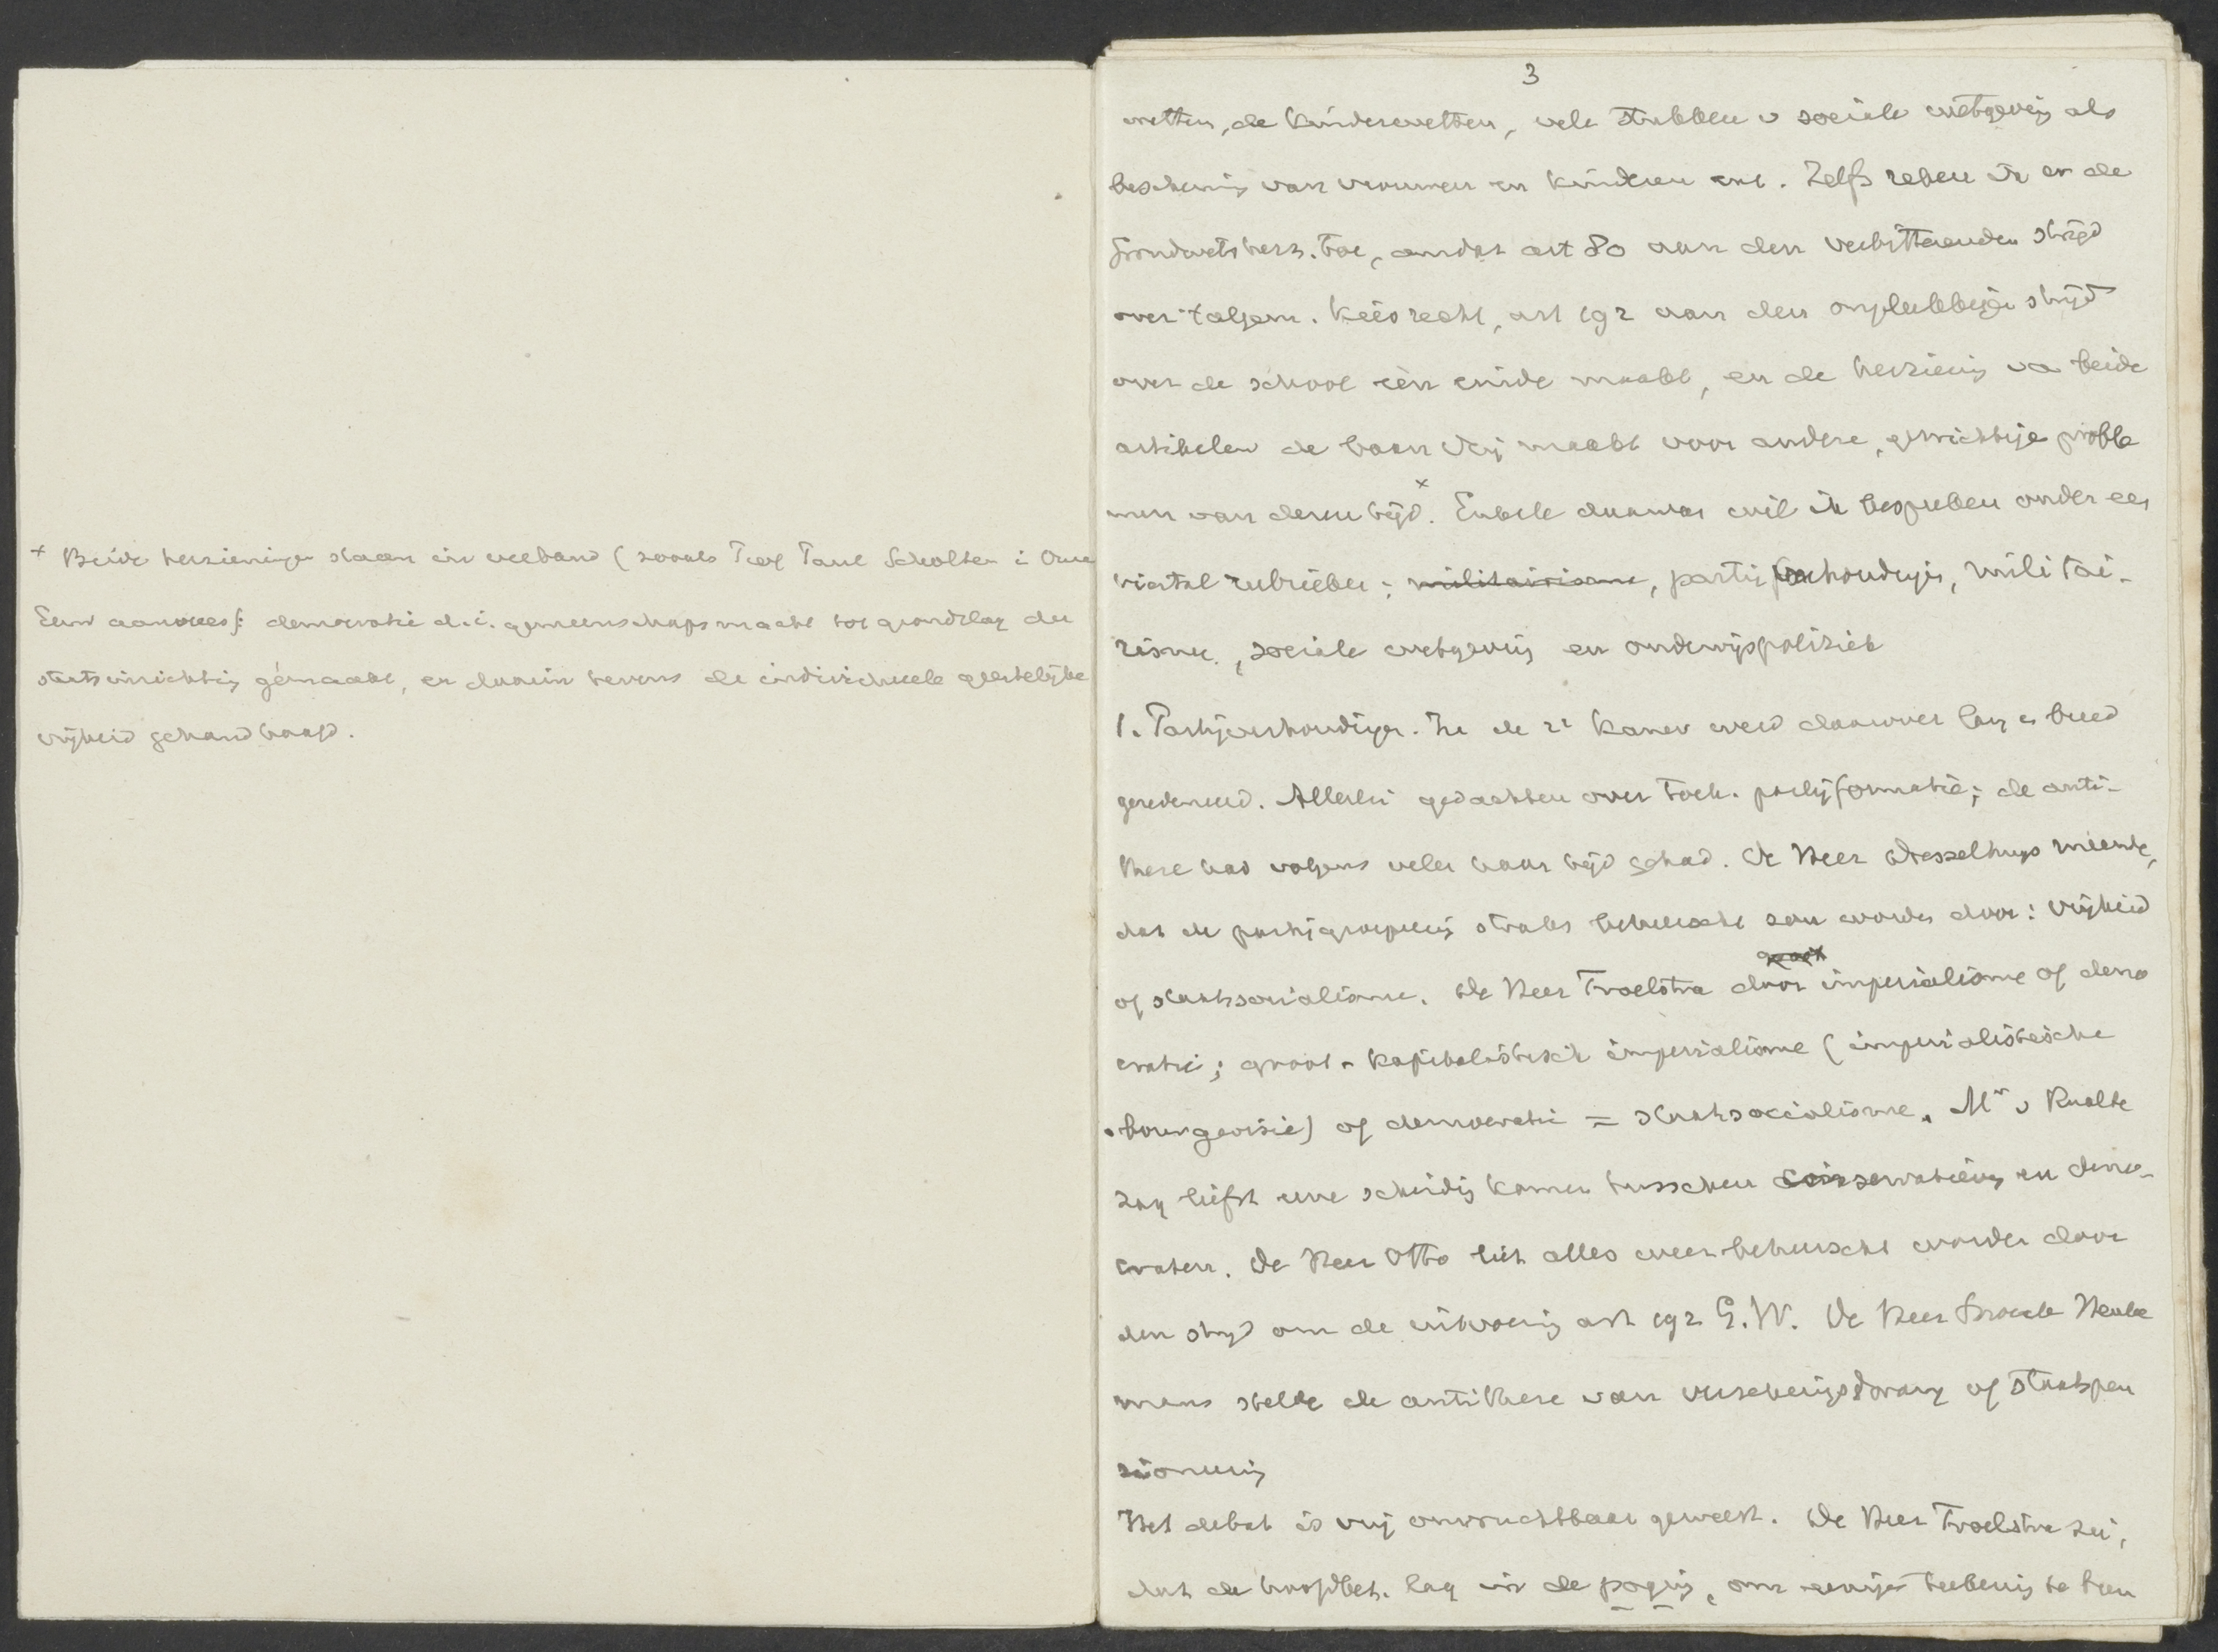 + Beide herzieningen staan in verband (zooals Prof Paul Scholten i Onze
Eeuw aanwees): democratie d.i. gemeenschapsmacht tot grondslag der
staatsinrichting gemaakt, en daarin tevens de individueele geestelijke
vrijheid gehandhaafd.
3
wetten, de kinderwetten, vele stukken v sociale wetgeving als
bescherming van vrouwen en kinderen enz. Zelfs reken ik er de
Grondwetsherz. toe, omdat art 80 aan den verbitterenden strijd
over 't algem. kiesrecht, art 192 aan den ongelukkigen strijd
over de school een einde maakt, en de herziening va beide
artikelen de baan vrij maakt voor andere, gewichtige proble
men van dezen tijd.x Enkele daarvan wil ik bespreken onder een
viertal rubrieken: militairisme, partijverhoudingen, militai-
risme, sociale wetgeving en onderwijspolitiek
1. Partijverhoudingen. In de 2e Kamer werd daarover lang en breed
geredeneerd. Allerlei gedachten over toek. partijformatie; de anti-
these had volgens velen haar tijd gehad. De Heer Dresselhuys meende,
dat de partijgroepeering straks beheerscht zou worden door: vrijheid
of staatssocialisme. De Heer Troelstra door imperialisme of demo
cratie; groot-kapitalistisch imperialisme (imperialistische
bourgeoisie) of democratie = staatssocialisme. Mr v Raalte
zag liefst eene scheiding komen tusschen conservatieven en demo-
craten. De Heer Otto liet alles weer beheerscht worden door
den strijd om de uitvoering art 192 G.W. De Heer Snoeck Henke
mans stelde de antithese van verzekeringsdwang of staatspen
sionneering
Het debat is vrij onvruchtbaar geweest. De Heer Troelstra zei,
dat de hoofdbet. lag in de poging, om eenige teekening te bren